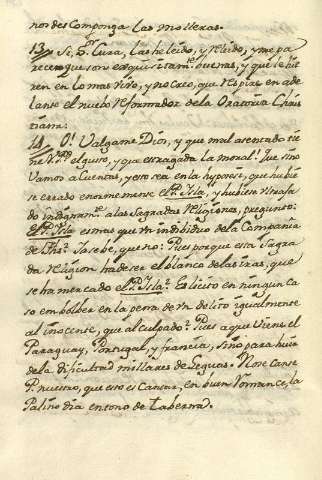 nos descomponga las molleras.
13. Si, Sr. Cura, las he leido, y releido, y me pa
recen que son exquisitamte. buenas, y que le hie
ren en lo mas vivo, y no creo, que respire en ade
lante el nuebo Reformador de la Oratoria Chris
tiana:
14. O! Valgame Dios, y que mal asentado tie
ne Vmd. el gusto, y que estragada la moral. Que sino
vamos a cuentas, y esto sea en la hypotesi, que hubie
se errado enormemente el Pe. Isla, y hubiera ultraja
do indignamte. a las Sagradas Religiones, pregunto:
el Pe. Isla es mas que un individuo de la Compañia
de Jhs? Ya se be, que no: Pues porque esta Sagra
da Religion ha de ser el blanco de las iras, que
se ha mercado el Pe. Isla? Es licito en ningun ca
so embolber en la pena de un delito igualmente
al inocente, que al culpado? Pues a que viene el
Paraguay, Portugal, y francia, sino para huir
de la dificultad millares de leguas. No se canse
P. nuestro, que esto es cantar, en buen Romance, la
Palinodia en tono de taberna.